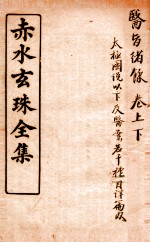 醫旨緒餘 卷上下
太極圖說以下及醫案若干種目詳
赤水玄珠全集